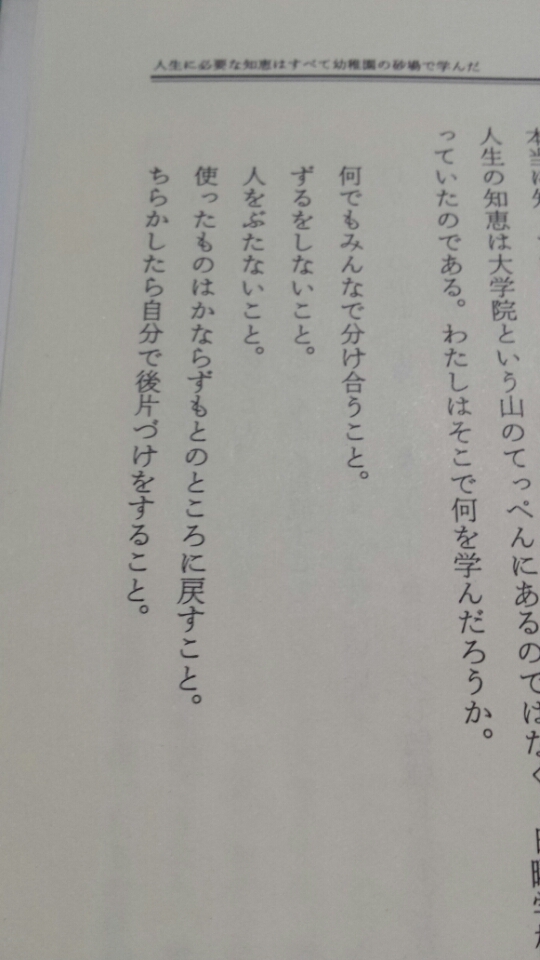 人生に必要な知恵はすべて幼稚園の砂場で学んだ
人生の知恵は大学院という山のてっぺんにあるのではなく
っていたのである。わたしはそこで何を学んだろうか。
何でもみんなで分け合うこと。
ずるをしないこと。
人をぶたないこと。
使ったものはかならずもとのところに戻すこと。
ちらかしたら自分で後片づけをすること。